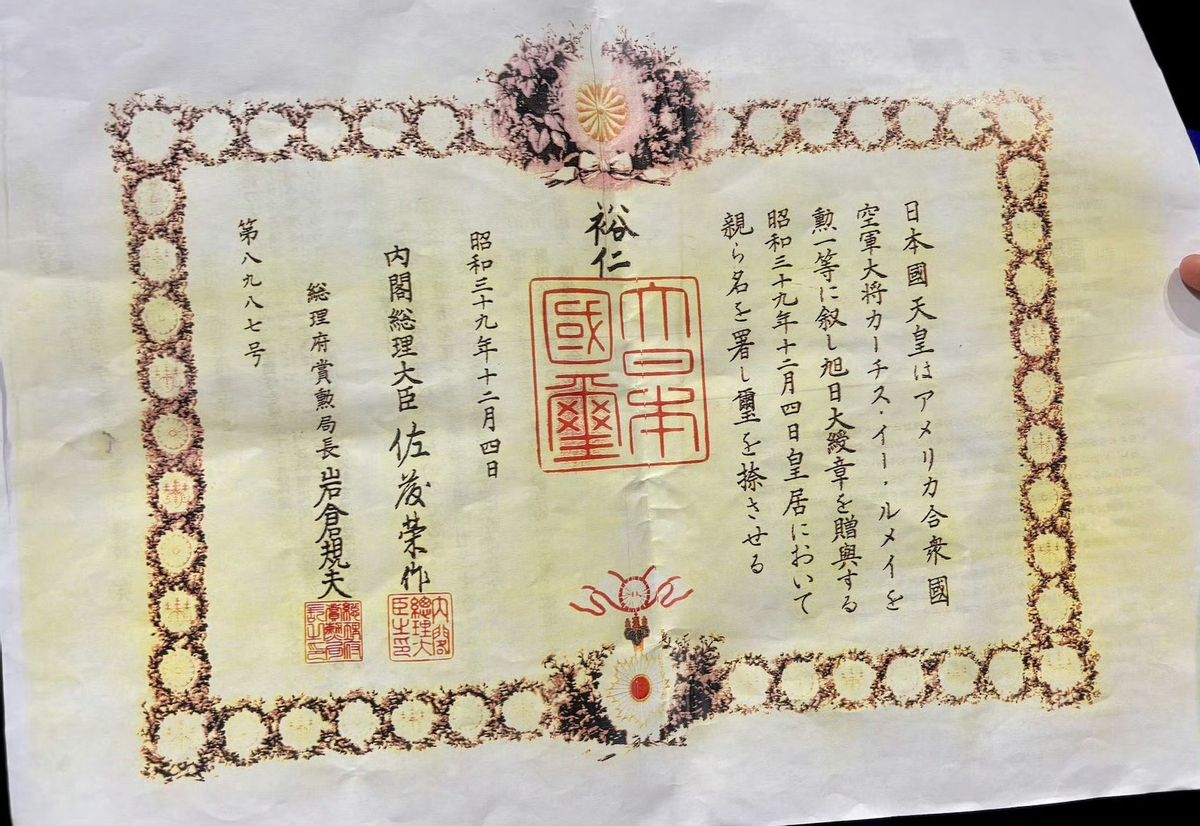 日本國天皇はアメリカ合衆國
空軍大将カーチス・イー・ルメイを
勲一等に叙し旭日大綬章を贈與する
昭和三十九年十二月四日皇居において
親ら名を署し璽を捺させる
裕仁
大日本
國璽
昭和三十九年十二月四日
内閣総理大臣 佐藤榮作
内閣総理大臣之印
総理府賞勲局長 岩倉規夫
第八九八七号